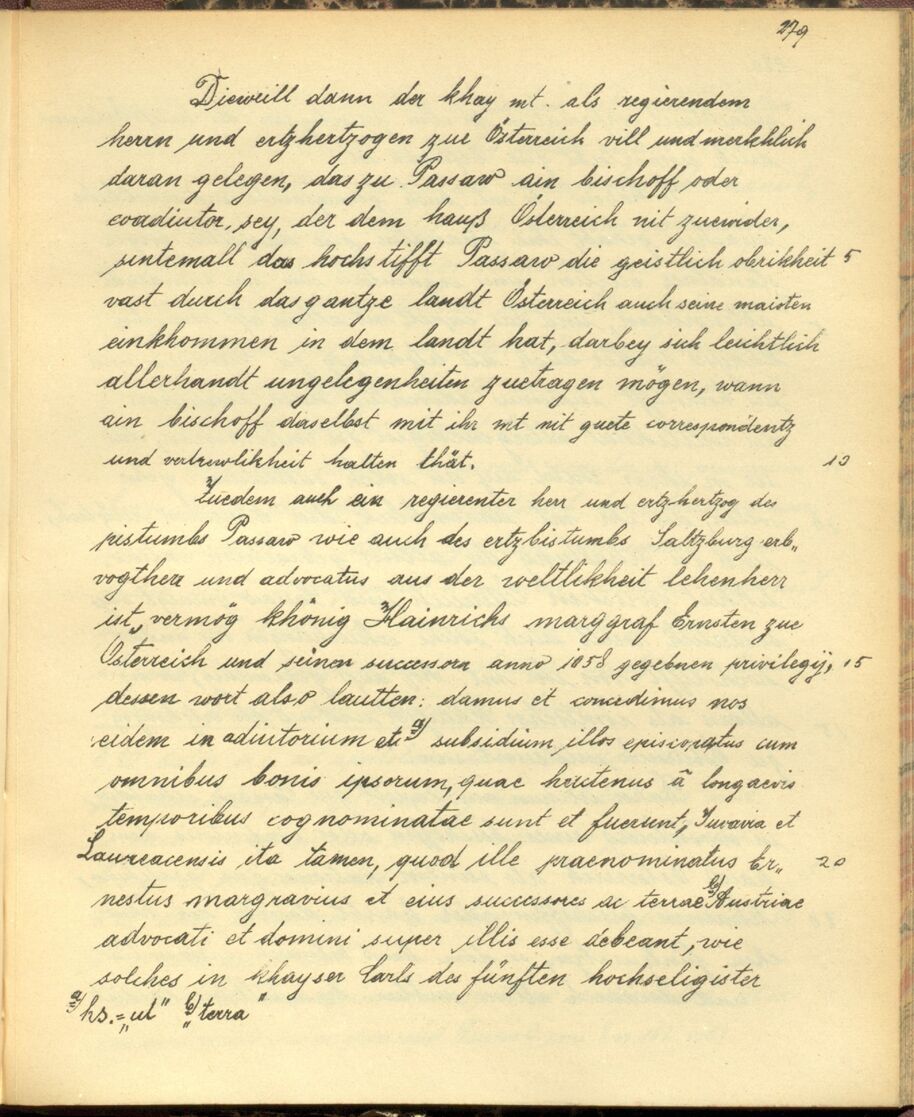 279
Dieweill dann der khay mt. als regierendem
herrn und ertzhertzogen zue Österreich vill und merkhlich
daran gelegen, das zu Passaw ain bischoff oder
coadiutor sey, der dem hauß Österreich nit zuewider,
sintemall das hochstifft Passaw die geistlich obrikheit 5
vast durch das gantze landt Österreich auch seine maisten
einkhommen in dem landt hat, darbey sich leichtlich
allerhandt ungelegenheiten zuetragen mögen, wann
ain bischoff daselbst mit ihr mt nit guete correspondentz
und vertrewlikheit halten thät. 10
Zuedem auch ein regierenter herr und ertzhertzog des
pistumbs Passaw wie auch des ertzbistumbs Saltzburg erb„
vogtherr und advocatus aus der weltlikheit lehenherr
ist, vermög khönig Hainrichs marggraf Ernsten zue
Österreich und seinen successorn anno 1058 gegebnen privilegij, 15
dessen wort also lautten: damus et concedimus nos
eidem in adiutorium et a) subsidium illos episcopatus cum
omnibus bonis ipsorum, quae hactenus â longaevis
temporibus cognominatae sunt et fuerunt, Iuvavia et
Laureacensis ita tamen, quod ille praenominatus Er„ 20
nestus margravius et eius successores ac terrae b) Austriae
advocati et domini super illis esse debeant, wie
solches in khayser Carls des fünften hochseligister
a) hs. = „ut" b) „terra"